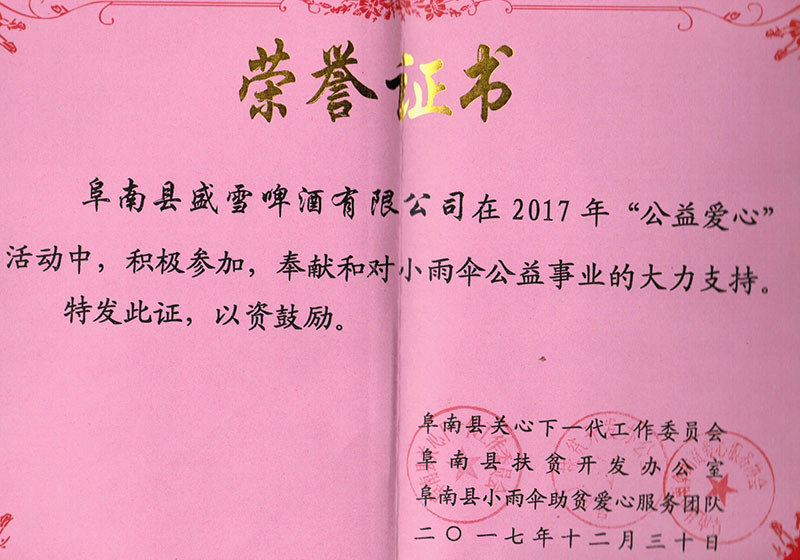 荣誉证书
阜南县盛雪啤酒有限公司在2017年“公益爱心”
活动中，积极参加，奉献和对小雨伞公益事业的大力支持。
特发此证，以资鼓励。
阜南县关心下一代工作委员会
阜南县扶贫开发办公室
阜南县小雨伞助贫爱心服务团队
二〇一七年十二月三十日